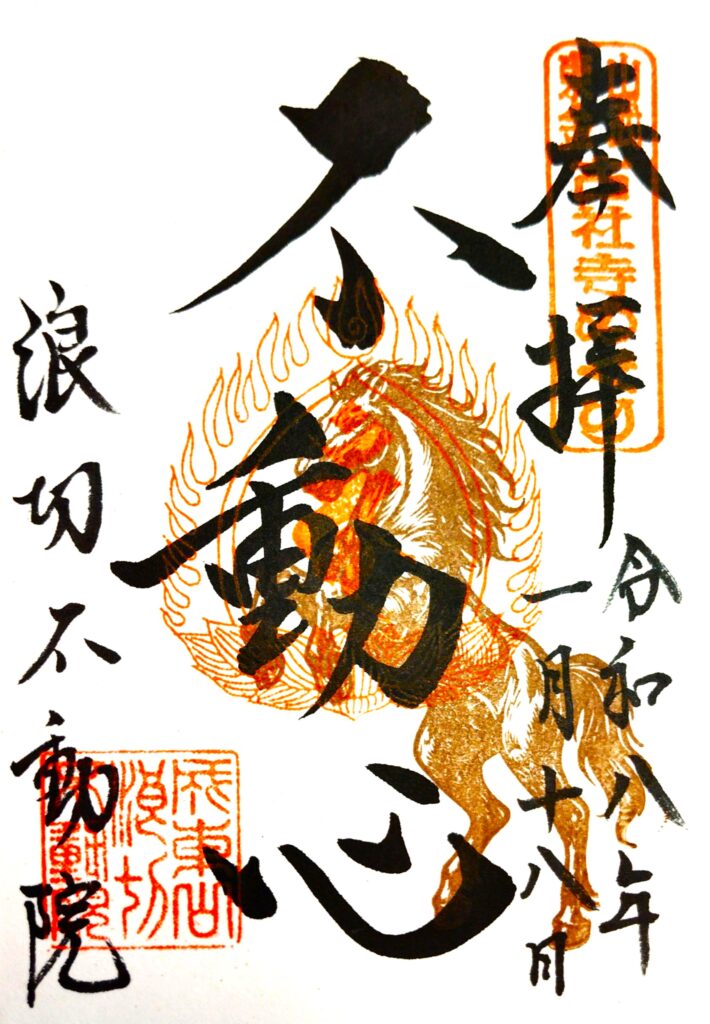 奉拝
令和八年
一月十八日
不動心
浪切不動院
成東山
浪切
不動院